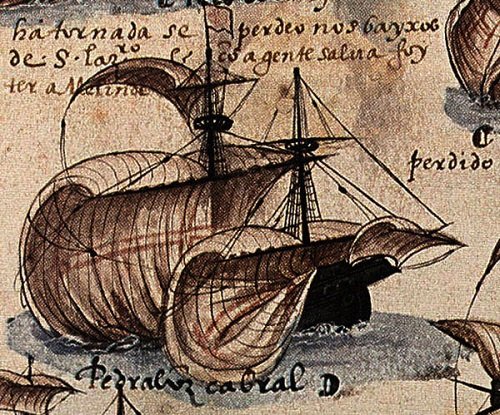 ha tornada se perdeo nos bayxos
de S. lazro e cõ a gente salva foy
ter a Melinde
perdido
Pedraluz cabral D